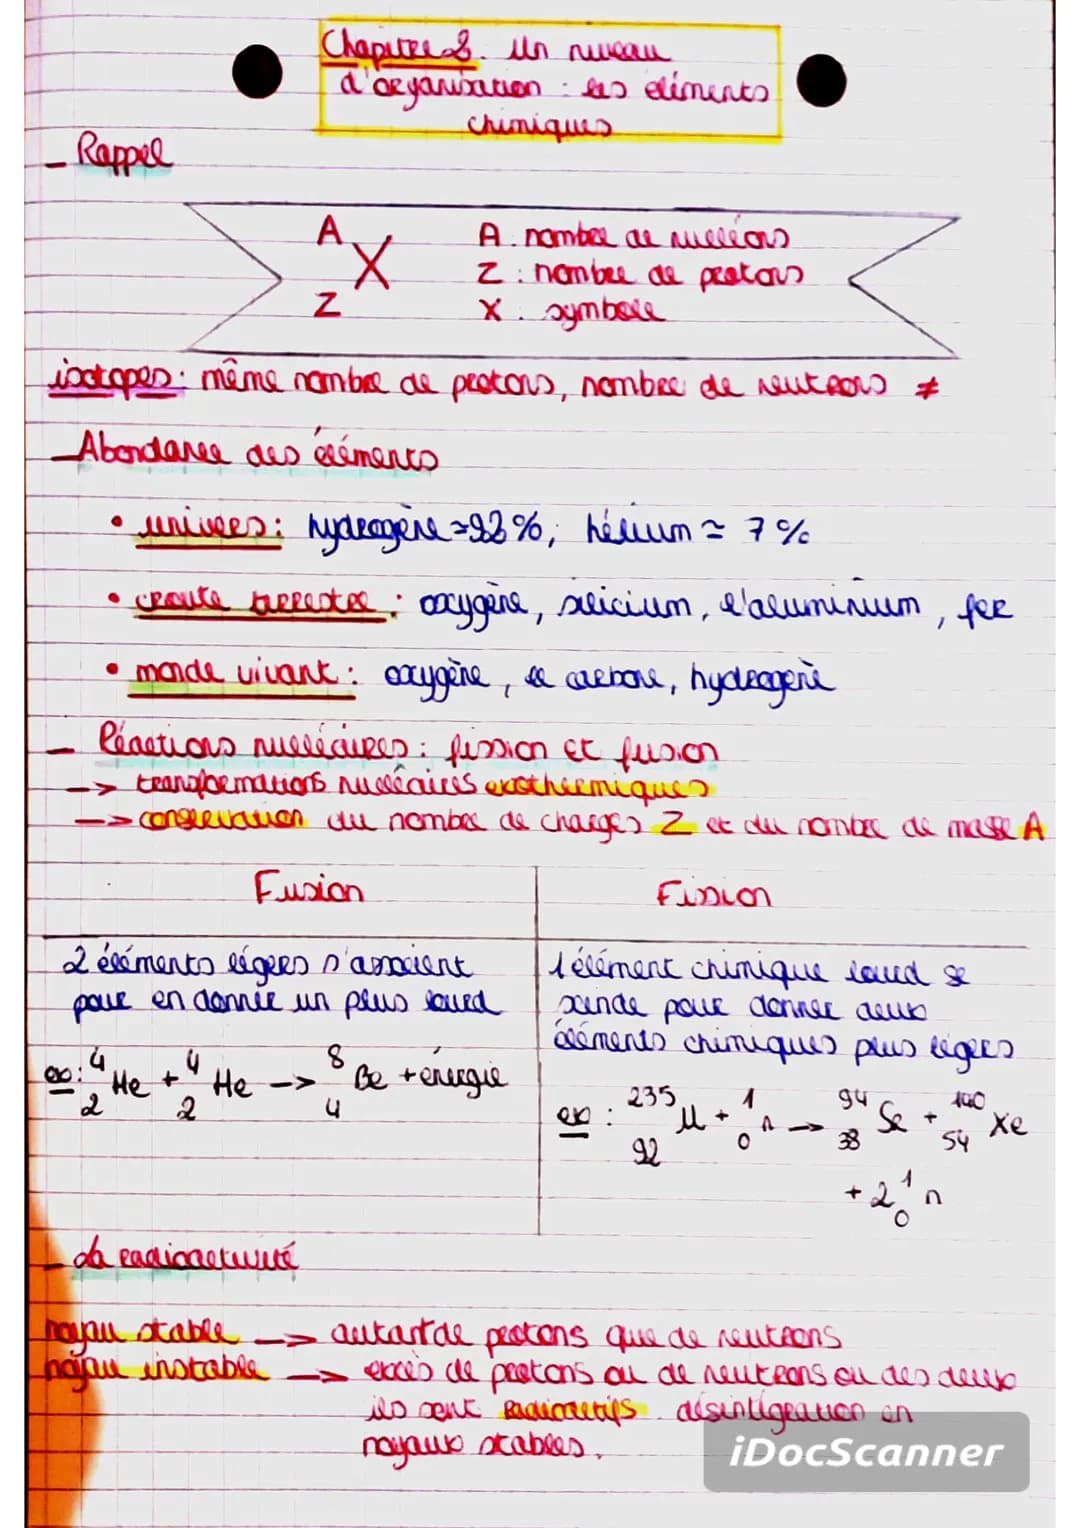 Chapitre 2. Un niveau
d'organisation : les éléments
chimiques
_ Rappel
A
X
Z
A. nombre de nucléons
Z : nombre de protons
X. symbole
isotopes : même nombre de protons, nombre de neutrons ≠
_ Abondance des éléments
• univers : hydrogène ≃ 92 %, hélium ≃ 7 %
• croute terrestre : oxygène, silicium, l'aluminium, fer
• monde vivant : oxygène, le carbone, hydrogène
_ Réactions nucléaires : fission et fusion
-> transformations nucléaires exothermiques
-> conservation du nombre de charges Z et du nombre de masse A
Fusion
2 éléments légers s'associent
pour en donner un plus lourd
ex : ⁴₂He + ⁴₂He -> ⁸₄Be + énergie
Fission
1 élément chimique lourd se
scinde pour donner deux
éléments chimiques plus légers
ex : ²³⁵₉₂U + ¹₀n -> ⁹⁴₃₈Sr + ¹⁴⁰₅₄Xe
+ 2 ¹₀n
_ La radioactivité
noyau stable -> autant de protons que de neutrons
noyau instable -> excès de protons ou de neutrons ou des deux
ils sont radioactifs. désintégration en
noyaux stables.
iDocScanner